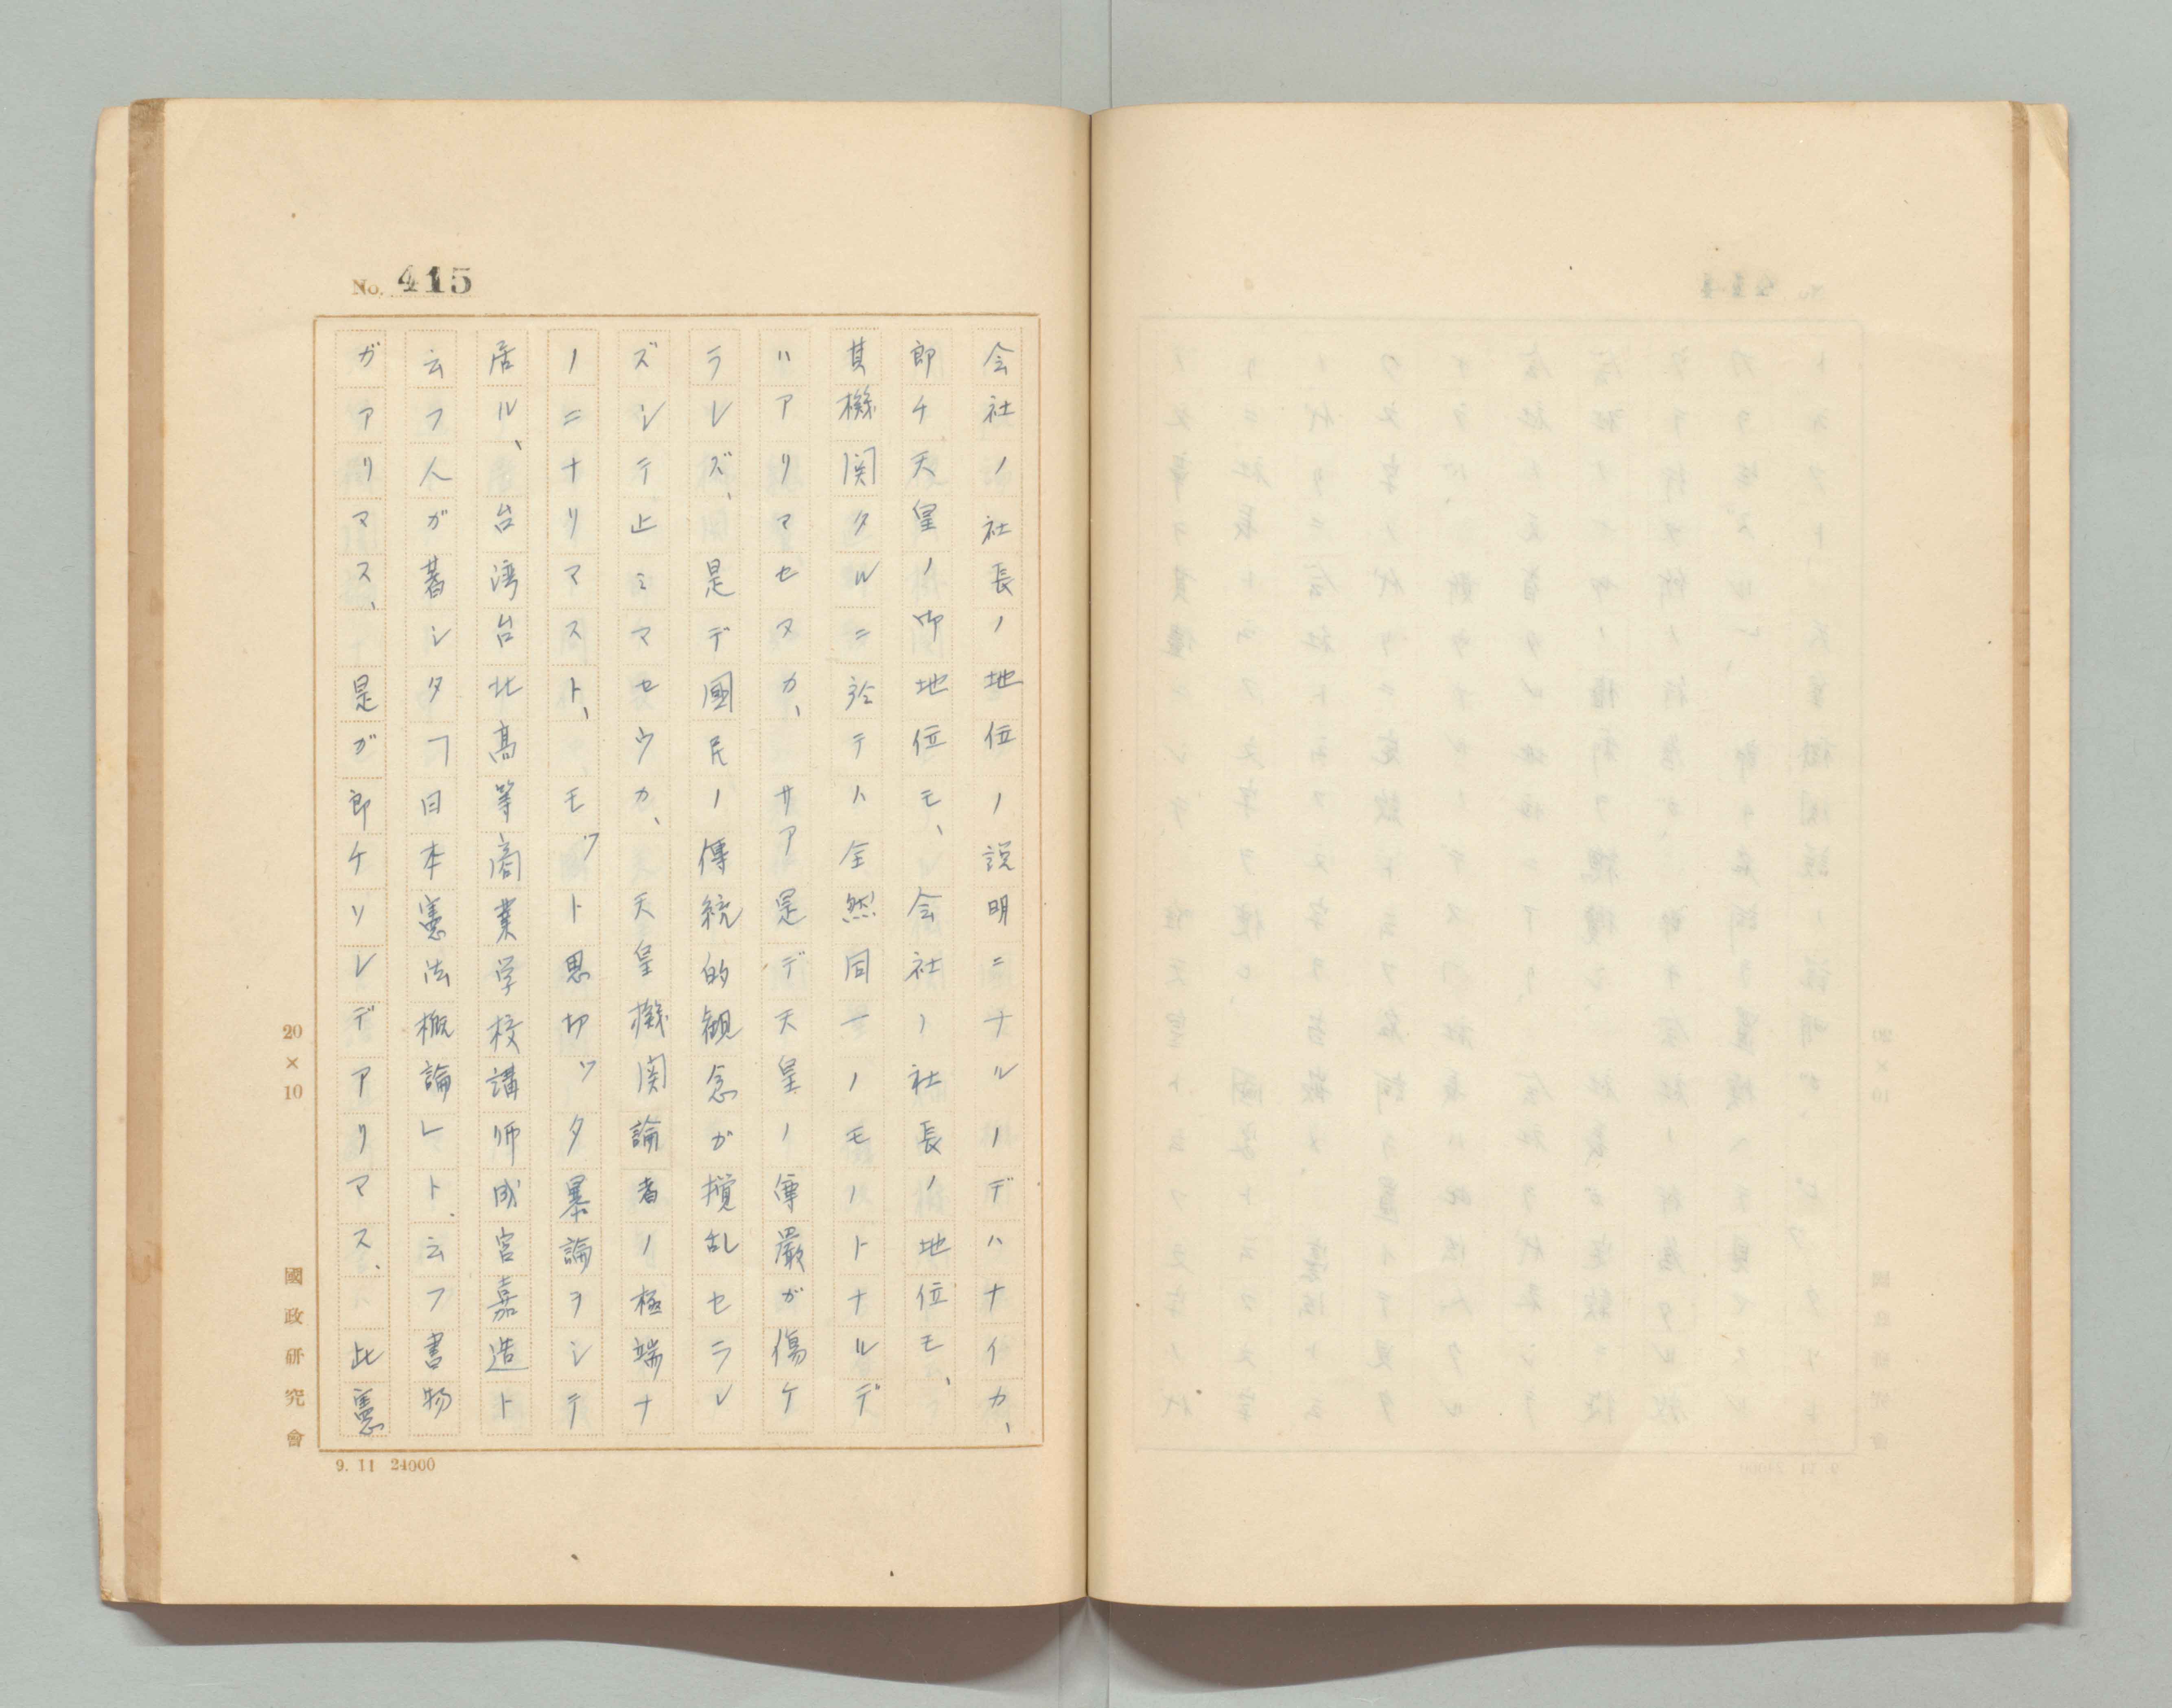 No. 415
会社ノ社長ノ地位ノ説明ニナルノデハナイカ、
即チ天皇ノ御地位モ、会社ノ社長ノ地位モ、
其機関タルニ於テハ全然同一ノモノトナルデ
ハアリマセヌカ、サア是デ天皇ノ尊厳ガ傷ケ
ラレズ、是デ國民ノ傳統的観念ガ撹乱セラレ
ズシテ止ミマセウカ、天皇機関論者ノ極端ナ
ノニナリマスト、モツト思切ツタ暴論ヲシテ
居ル、台湾台北高等商業学校講師成宮嘉造ト
云フ人ガ著シタ「日本憲法概論」ト云フ書物
ガアリマス、是ガ即ケソレデアリマス、此憲
20×10
國政研究會
9. 11 24000